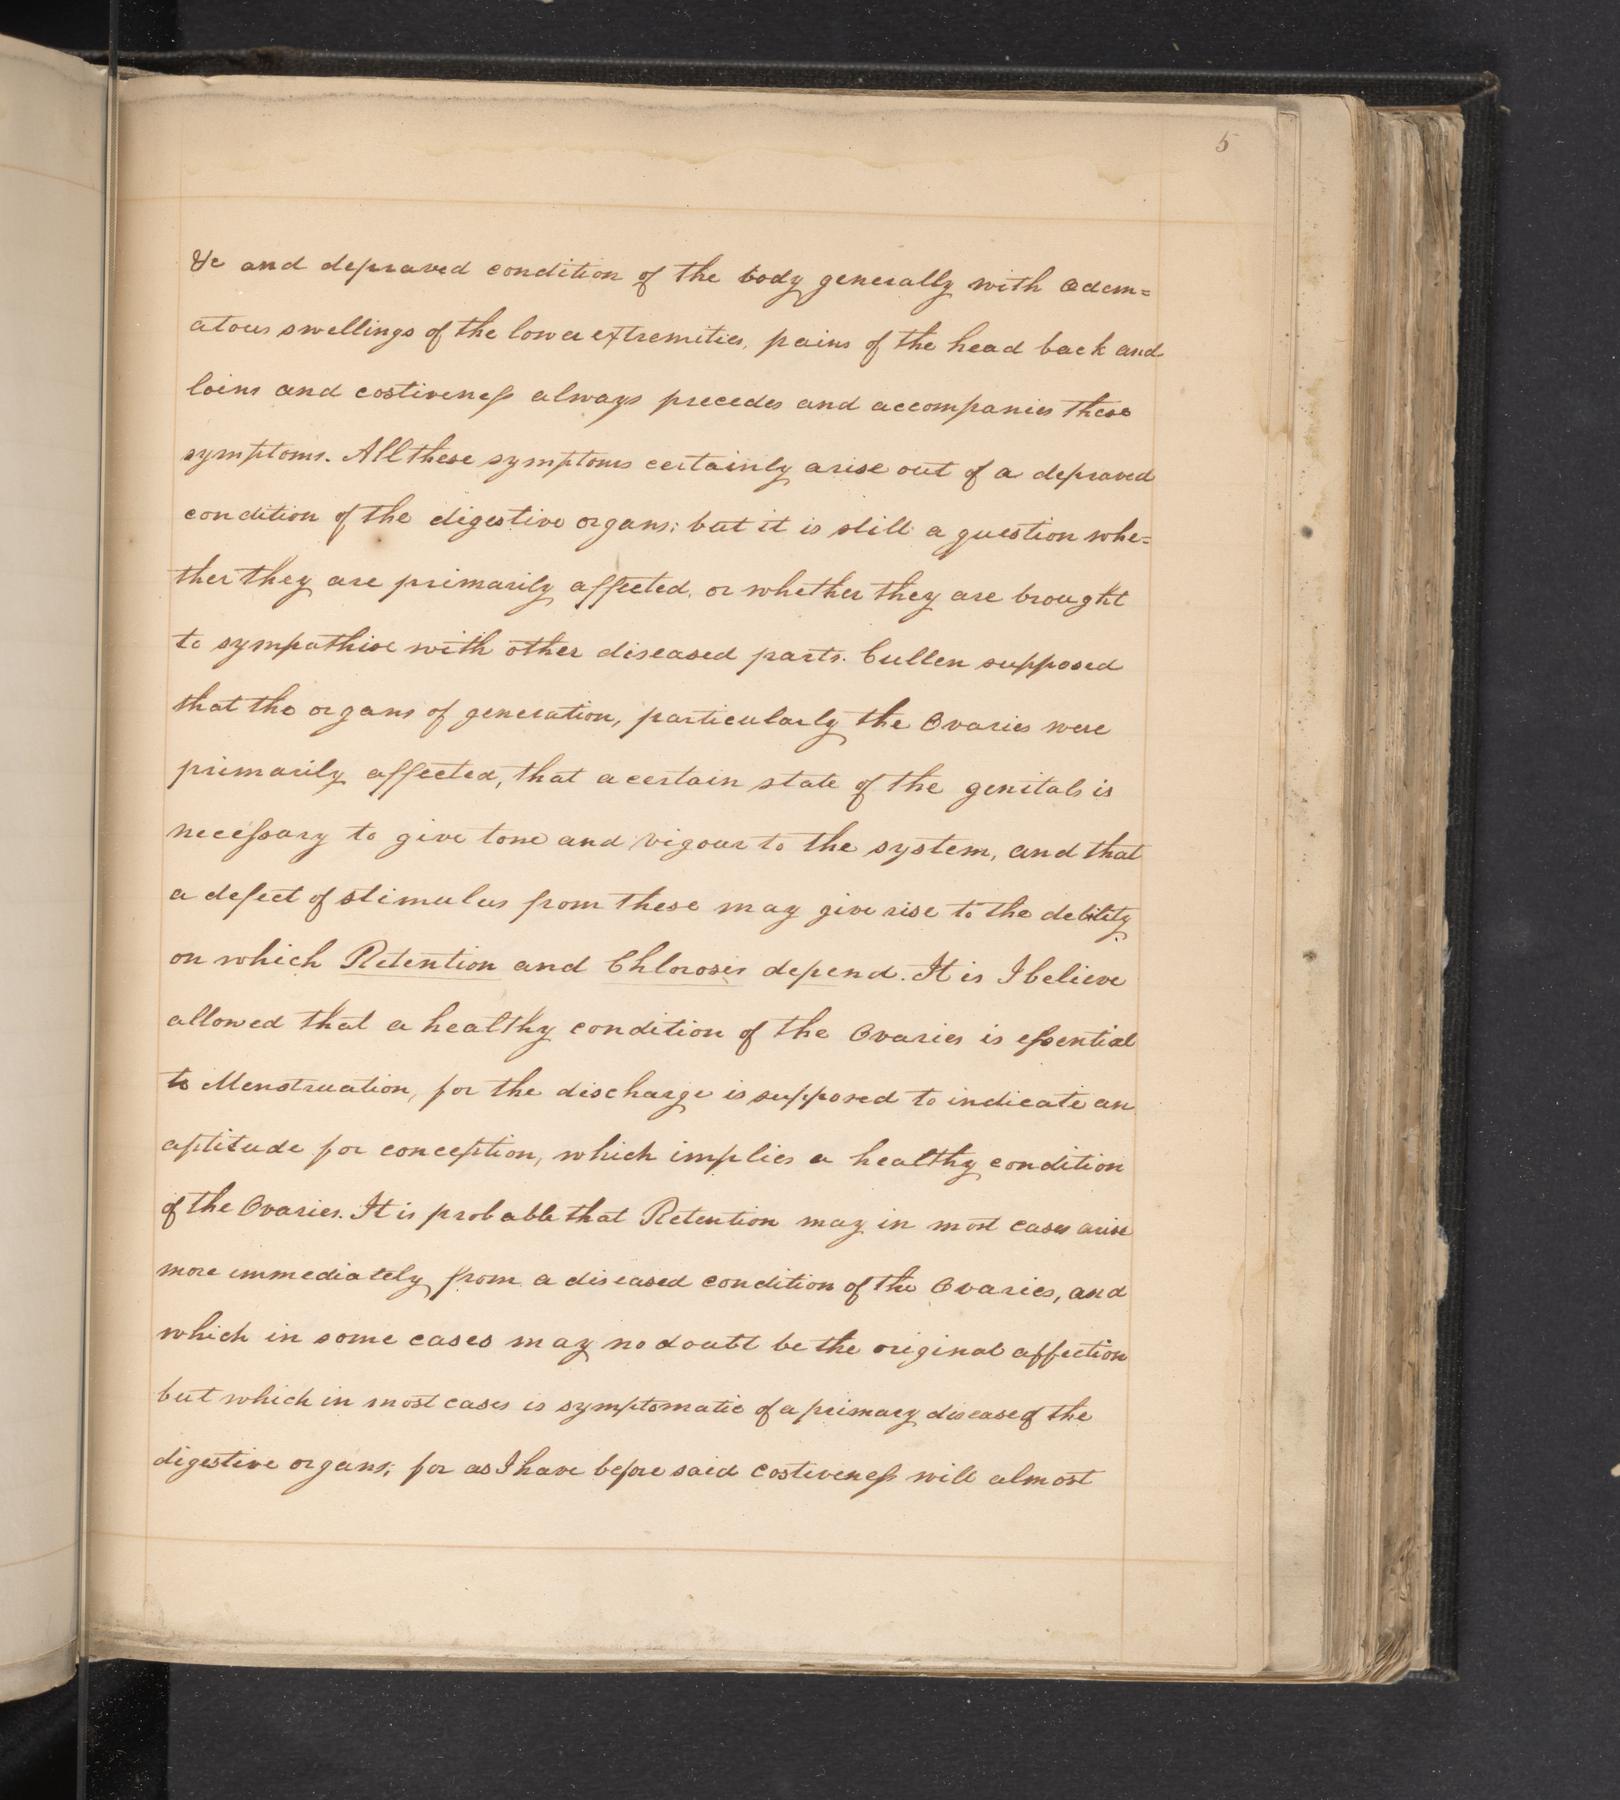 5
&c and depraved condition of the body generally with Œdem=
atous swellings of the lower extremities, pains of the head back and
loins and costiveness always precedes and accompanies these
symptoms. All these symptoms certainly arise out of a depraved
condition of the digestive organs; but it is still a question whe=
ther they are primarily affected, or whether they are brought
to sympathise with other diseased parts. Cullen supposed
that the organs of generation, particularly the Ovaries were
primarily affected, that a certain state of the genitals is
necessary to give tone and vigour to the system, and that
a defect of stimulus from these may give rise to the debility
on which Retention and Chlorosis depend. It is I believe
allowed that a healthy condition of the Ovaries is essential
to Menstruation, for the discharge is supposed to indicate an
aptitude for conception, which implies a healthy condition
of the Ovaries. It is probable that Retention may in most cases arise
more immediately from a diseased condition of the Ovaries, and
which in some cases may no doubt be the original affection
but which in most cases is symptomatic of a primary disease of the
digestive organs; for as I have before said costiveness will almost